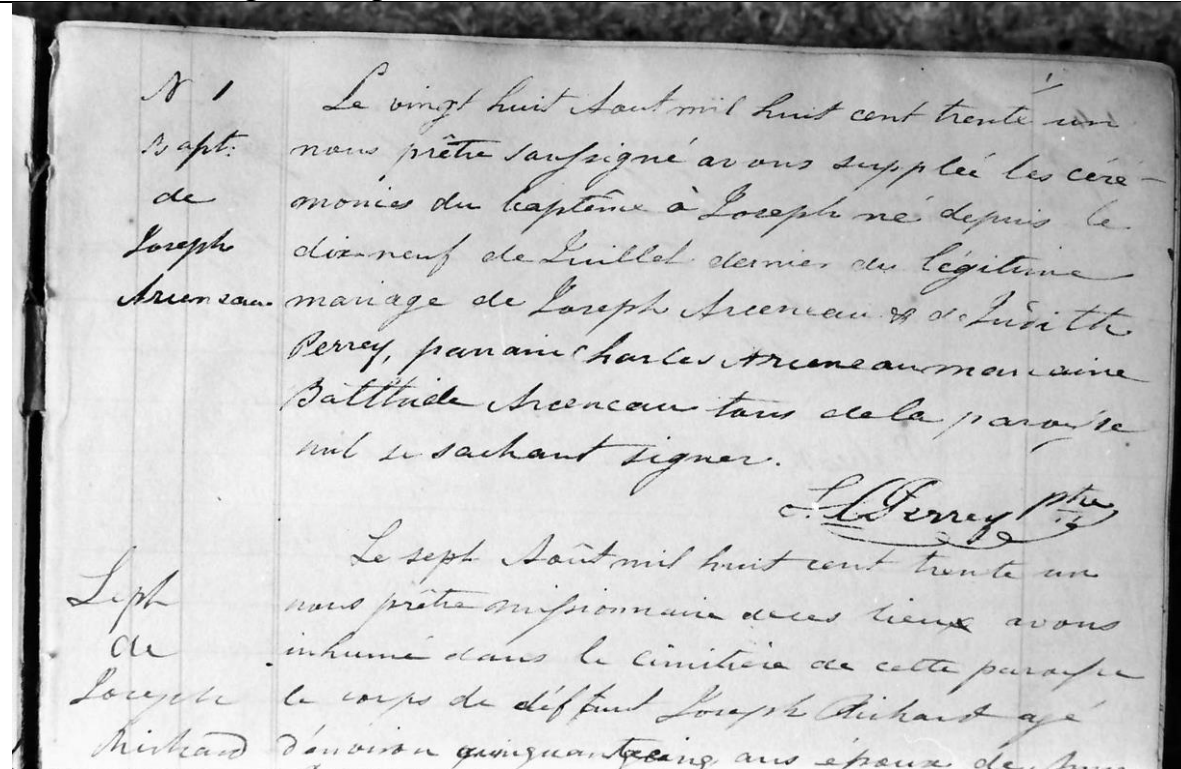 N 1
Bapt:
de
Joseph
Arceneau
Le vingt huit Aout mil huit cent trente un
nous prêtre soussigné avons suppléé les céré-
monies du baptême à Joseph né depuis le
dix neuf de Juillet dernier du légitime
mariage de Joseph Arceneau & de Judith
Perrey, parrain Charles Arceneau marraine
Batthilde Arceneau tous de la paroisse
nul ne sachant signer.
Perrey ptre
Seph
de
Joseph
Richard
Le sept Août mil huit cent trente un
nous prêtre missionnaire de ces lieux avons
inhumé dans le cimitière de cette paroisse
le corps de déffunt Joseph Richard agé
d'environ cinquante cinq ans époux de